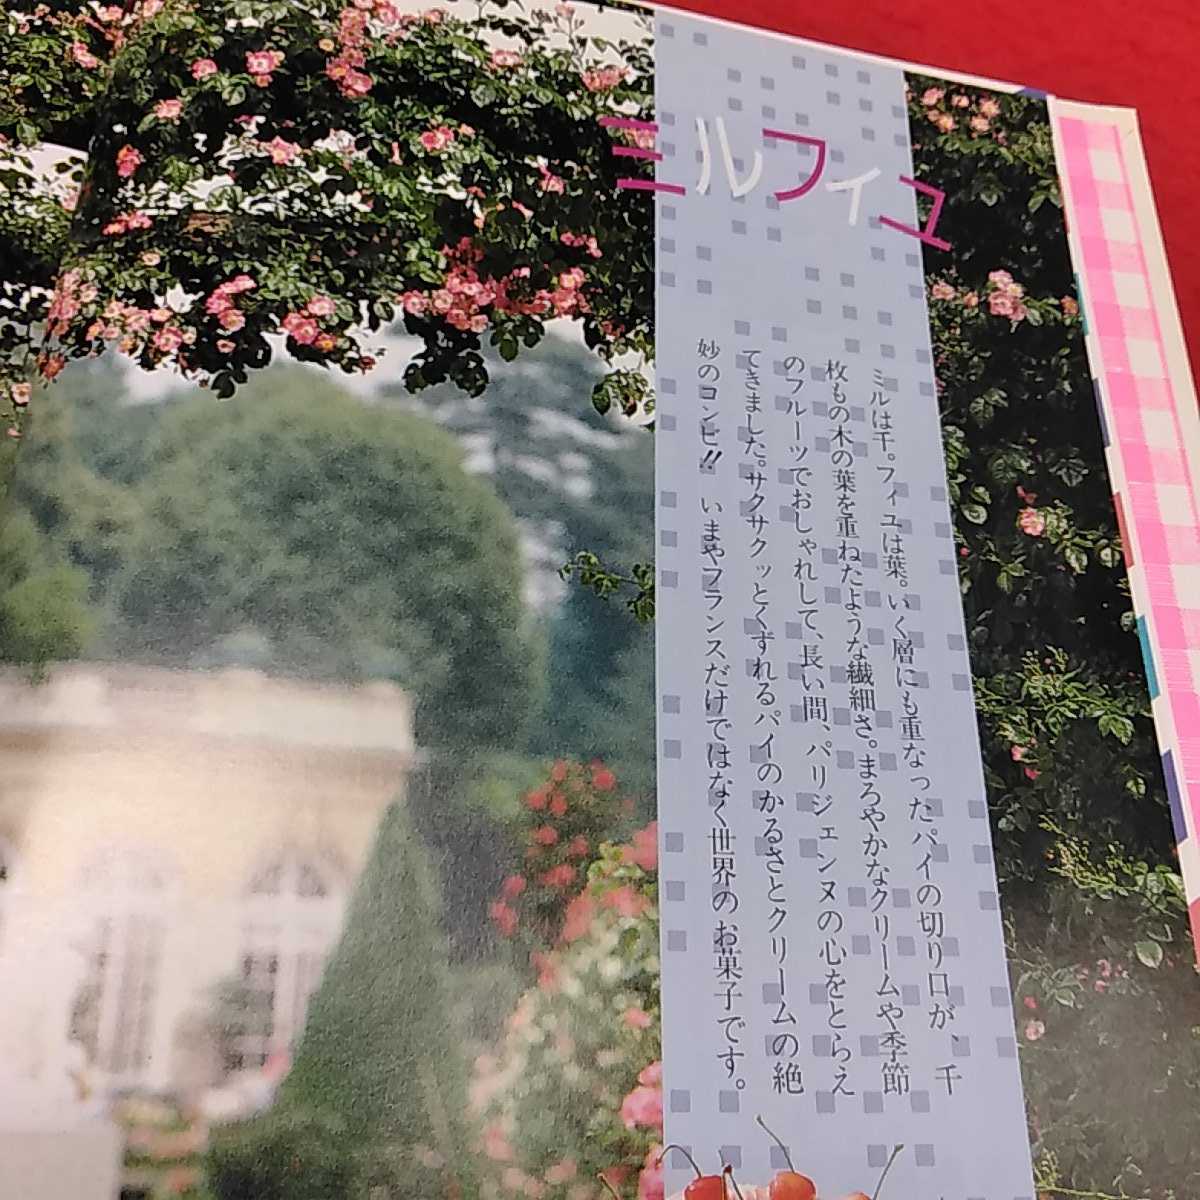 ミルフィユ
ミルは千。フィユは葉。いく層にも重なったパイの切り口が、千
枚もの木の葉を重ねたような繊細さ。まろやかなクリームや季節
のフルーツでおしゃれして、長い間、パリジェンヌの心をとらえ
てきました。サクサクッとくずれるパイのかるさとクリームの絶
妙のコンビ!! いまやフランスだけではなく世界のお菓子です。